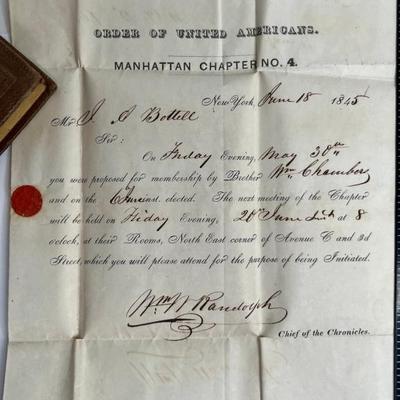 ORDER OF UNITED AMERICANS.
MANHATTAN CHAPTER NO. 4.
New York, June 18 1845
Mr J. A Bottell
Sir:
On Friday Evening, May 30th
you were proposed for membership by Brother Wm Chambers
and on the 6 June inst. elected. The next meeting of the Chapter
will be held on Friday Evening, 20 June Inst at 8
o'clock, at their Rooms, North East corner of Avenue C and 3d
Street, which you will please attend for the purpose of being Initiated.
Wm W Randolph
Chief of the Chronicles.